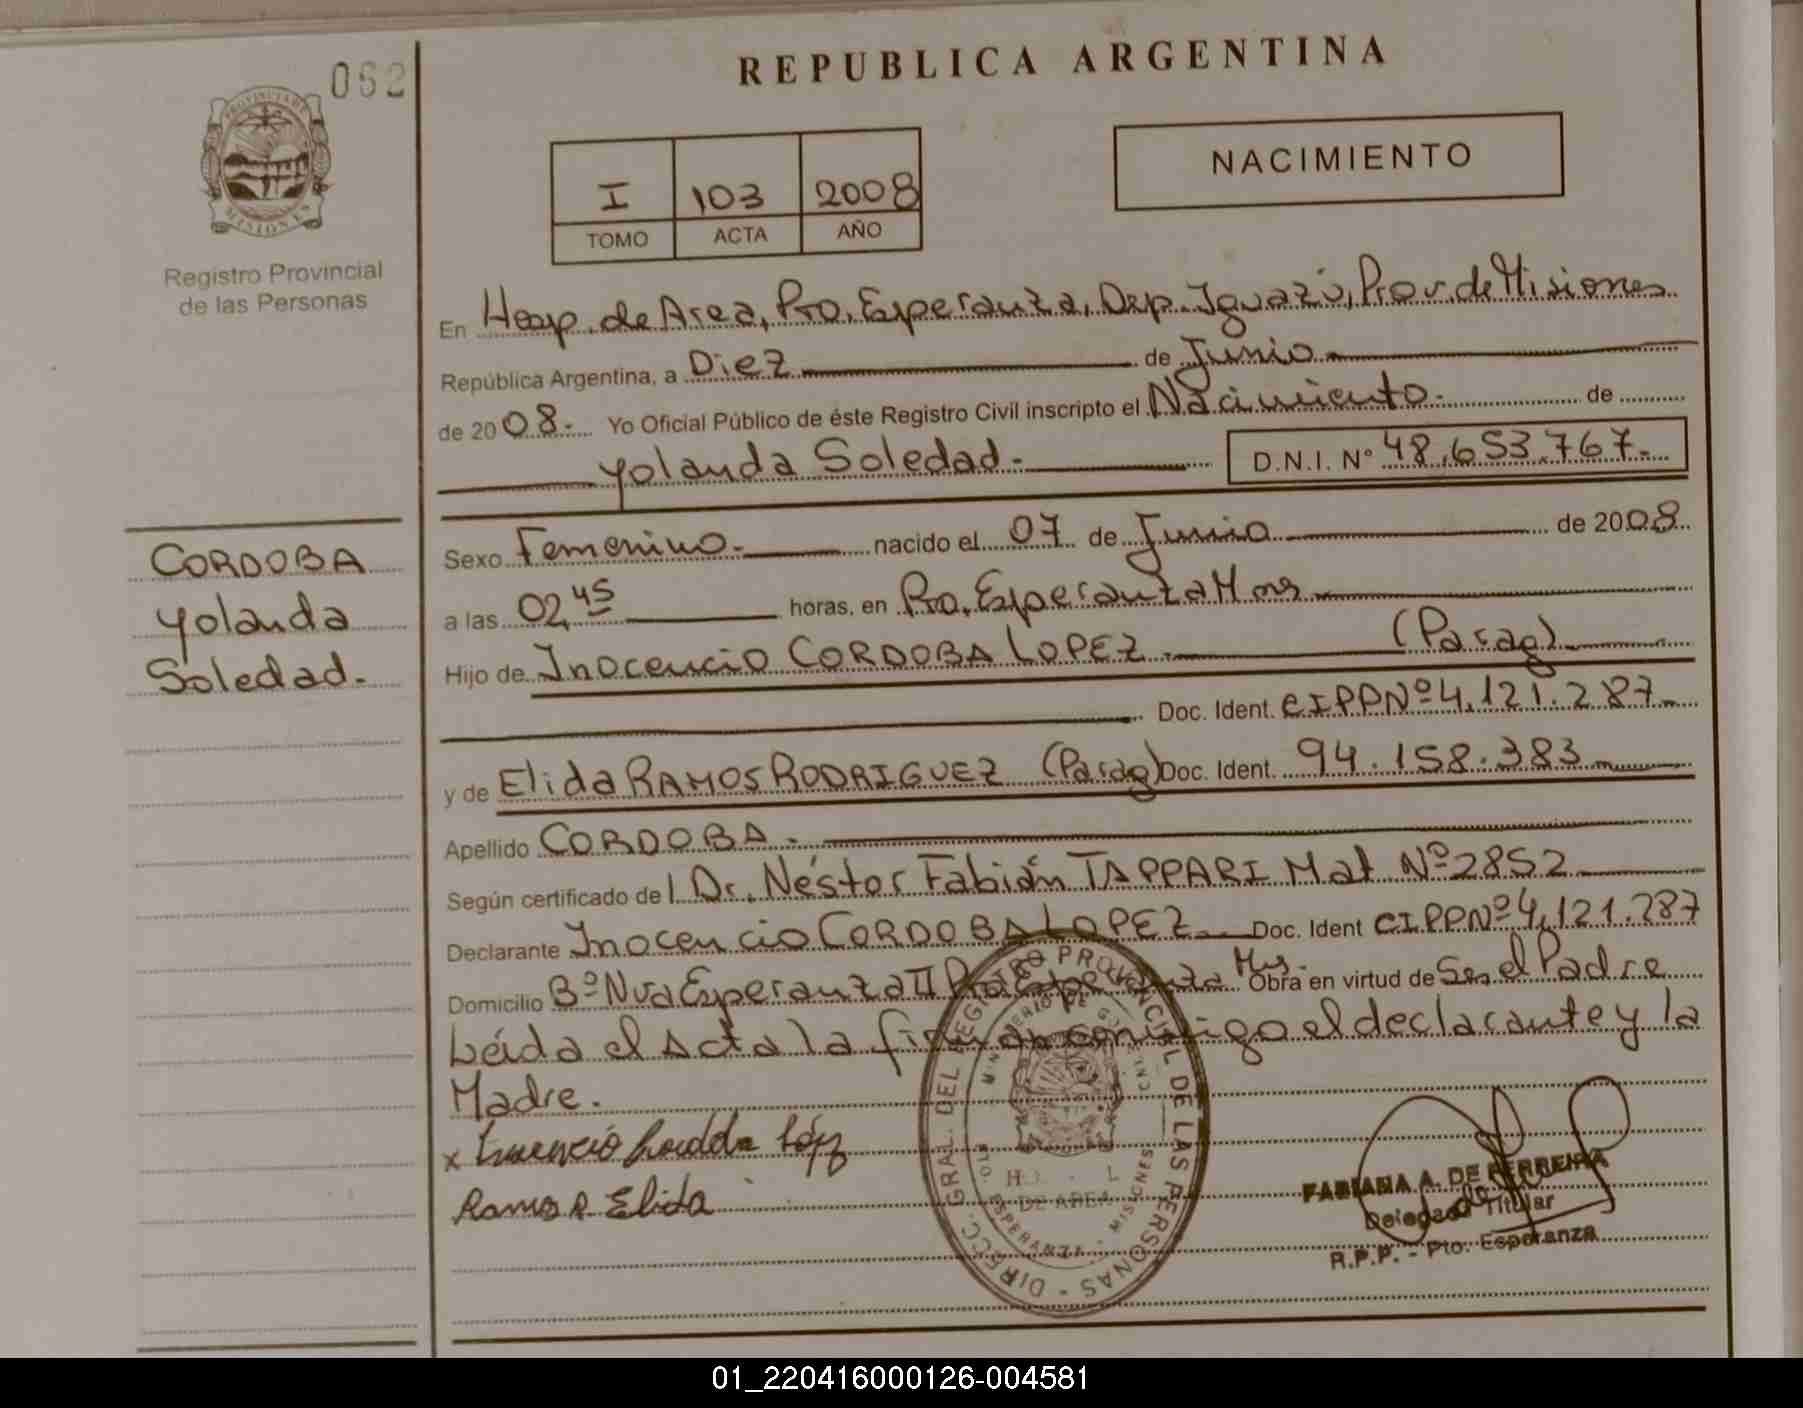 062
REPUBLICA ARGENTINA
PROVINCIA DE MISIONES
I 103 2008
TOMO ACTA AÑO
NACIMIENTO
Registro Provincial
de las Personas
En Hosp. de Area, Pto. Esperanza, Dep. Iguazú, Prov. de Misiones
República Argentina, a Diez de Junio
de 2008.- Yo Oficial Público de éste Registro Civil inscripto el Nacimiento. de
Yolanda Soledad.- D.N.I. Nº 48.653.767.-
CORDOBA
Yolanda
Soledad.-
Sexo Femenino.- nacido el 07 de Junio de 2008
a las 02,45 horas, en Pto. Esperanza Mnes
Hijo de Inocencio CORDOBA LOPEZ.- (Parag)
Doc. Ident. CIPPNº 4.121.287.-
y de Elida RAMOS RODRIGUEZ (Parag) Doc. Ident. 94.158.383
Apellido CORDOBA.-
Según certificado de l Dr. Néstor Fabián TAPPARI Mat Nº 2852
Declarante Inocencio CORDOBA LOPEZ.- Doc. Ident CIPPNº 4.121.287
Domicilio Bº Nva Esperanza II Pto Esperanza Mns. Obra en virtud de Ser el Padre
Leída el Acta la firman conmigo el declarante y la
Madre.
x Inocencio Cordoba López
Ramos R. Elida
DIRECC. GRAL. DEL REGISTRO PROVINCIAL DE LAS PERSONAS -
MINISTERIO DE
DE AREA
ESPERANZA - MISIONES
FABIANA A. DE FERREIRA
Delegada Titular
R.P.P. - Pto. Esperanza
01_220416000126-004581